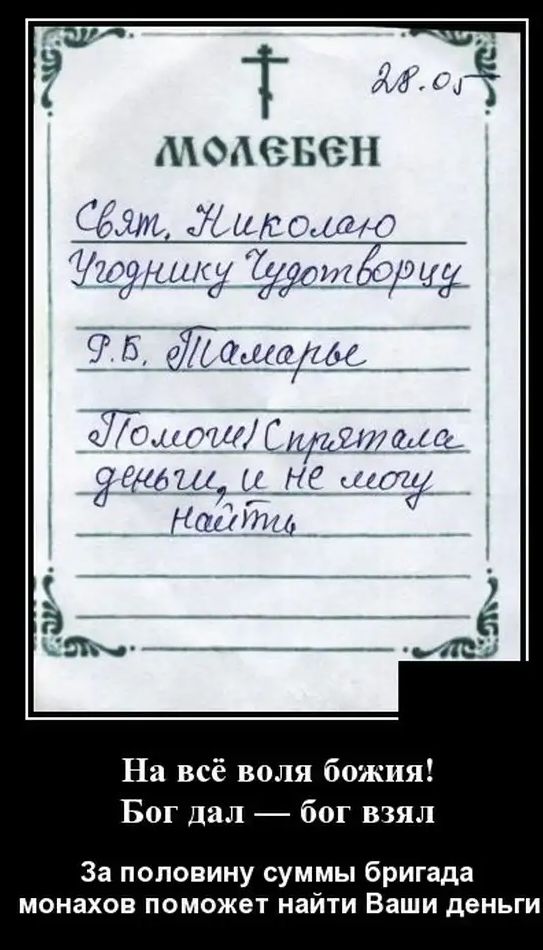 28.05
МОЛЕБЕН
Свят. Николаю
Угоднику Чудотворцу
Р.Б. Тамарье
Помоги! Спрятала
деньги, и не могу
найти
На всё воля божия!
Бог дал — бог взял
За половину суммы бригада
монахов поможет найти Ваши деньги